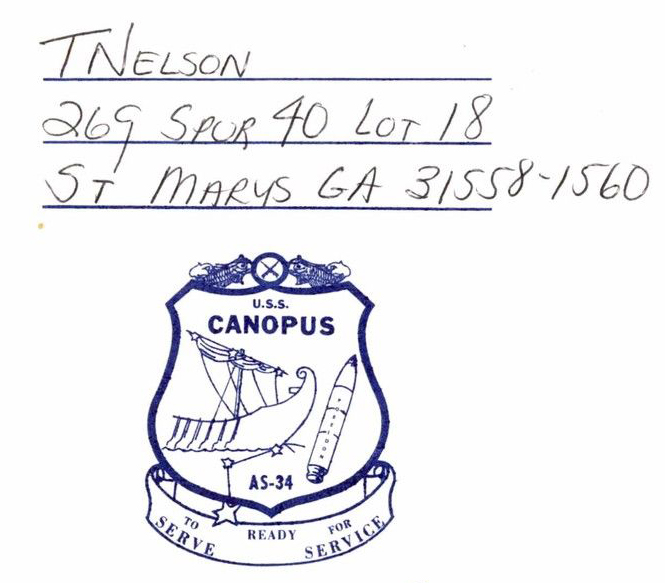 TNELSON
269 SPUR 40 LOT 18
ST MARYS GA 31558-1560
U.S.S.
CANOPUS
POSEIDON
AS-34
TO SERVE READY FOR SERVICE